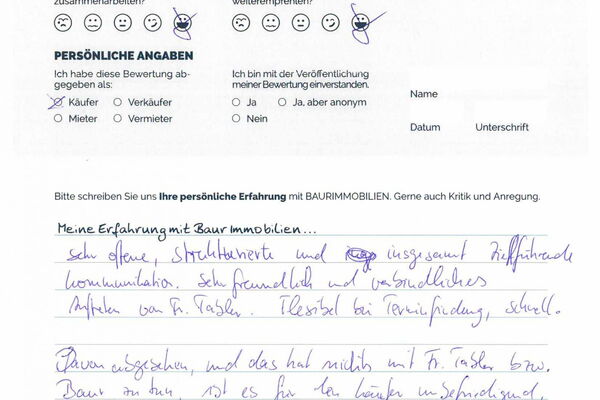 zusammenarbeiten?
weiterempfehlen?
PERSÖNLICHE ANGABEN
Ich habe diese Bewertung ab-
gegeben als:
Käufer
Verkäufer
Mieter
Vermieter
Ich bin mit der Veröffentlichung
meiner Bewertung einverstanden.
Ja
Ja, aber anonym
Nein
Name
Datum
Unterschrift
Bitte schreiben Sie uns Ihre persönliche Erfahrung mit BAURIMMOBILIEN. Gerne auch Kritik und Anregung.
Meine Erfahrung mit Baur Immobilien...
Sehr offene, strukturierte und insgesamt zielführende
Kommunikation. Sehr freundlich und verbindliches
Auftreten von Fr. Tabler. Flexibel bei Terminfindung, schnell.
Davon abgesehen, und das hat nichts mit Fr. Tabler bzw.
Baur zu tun, ist es für den Käufer unbefriedigend,